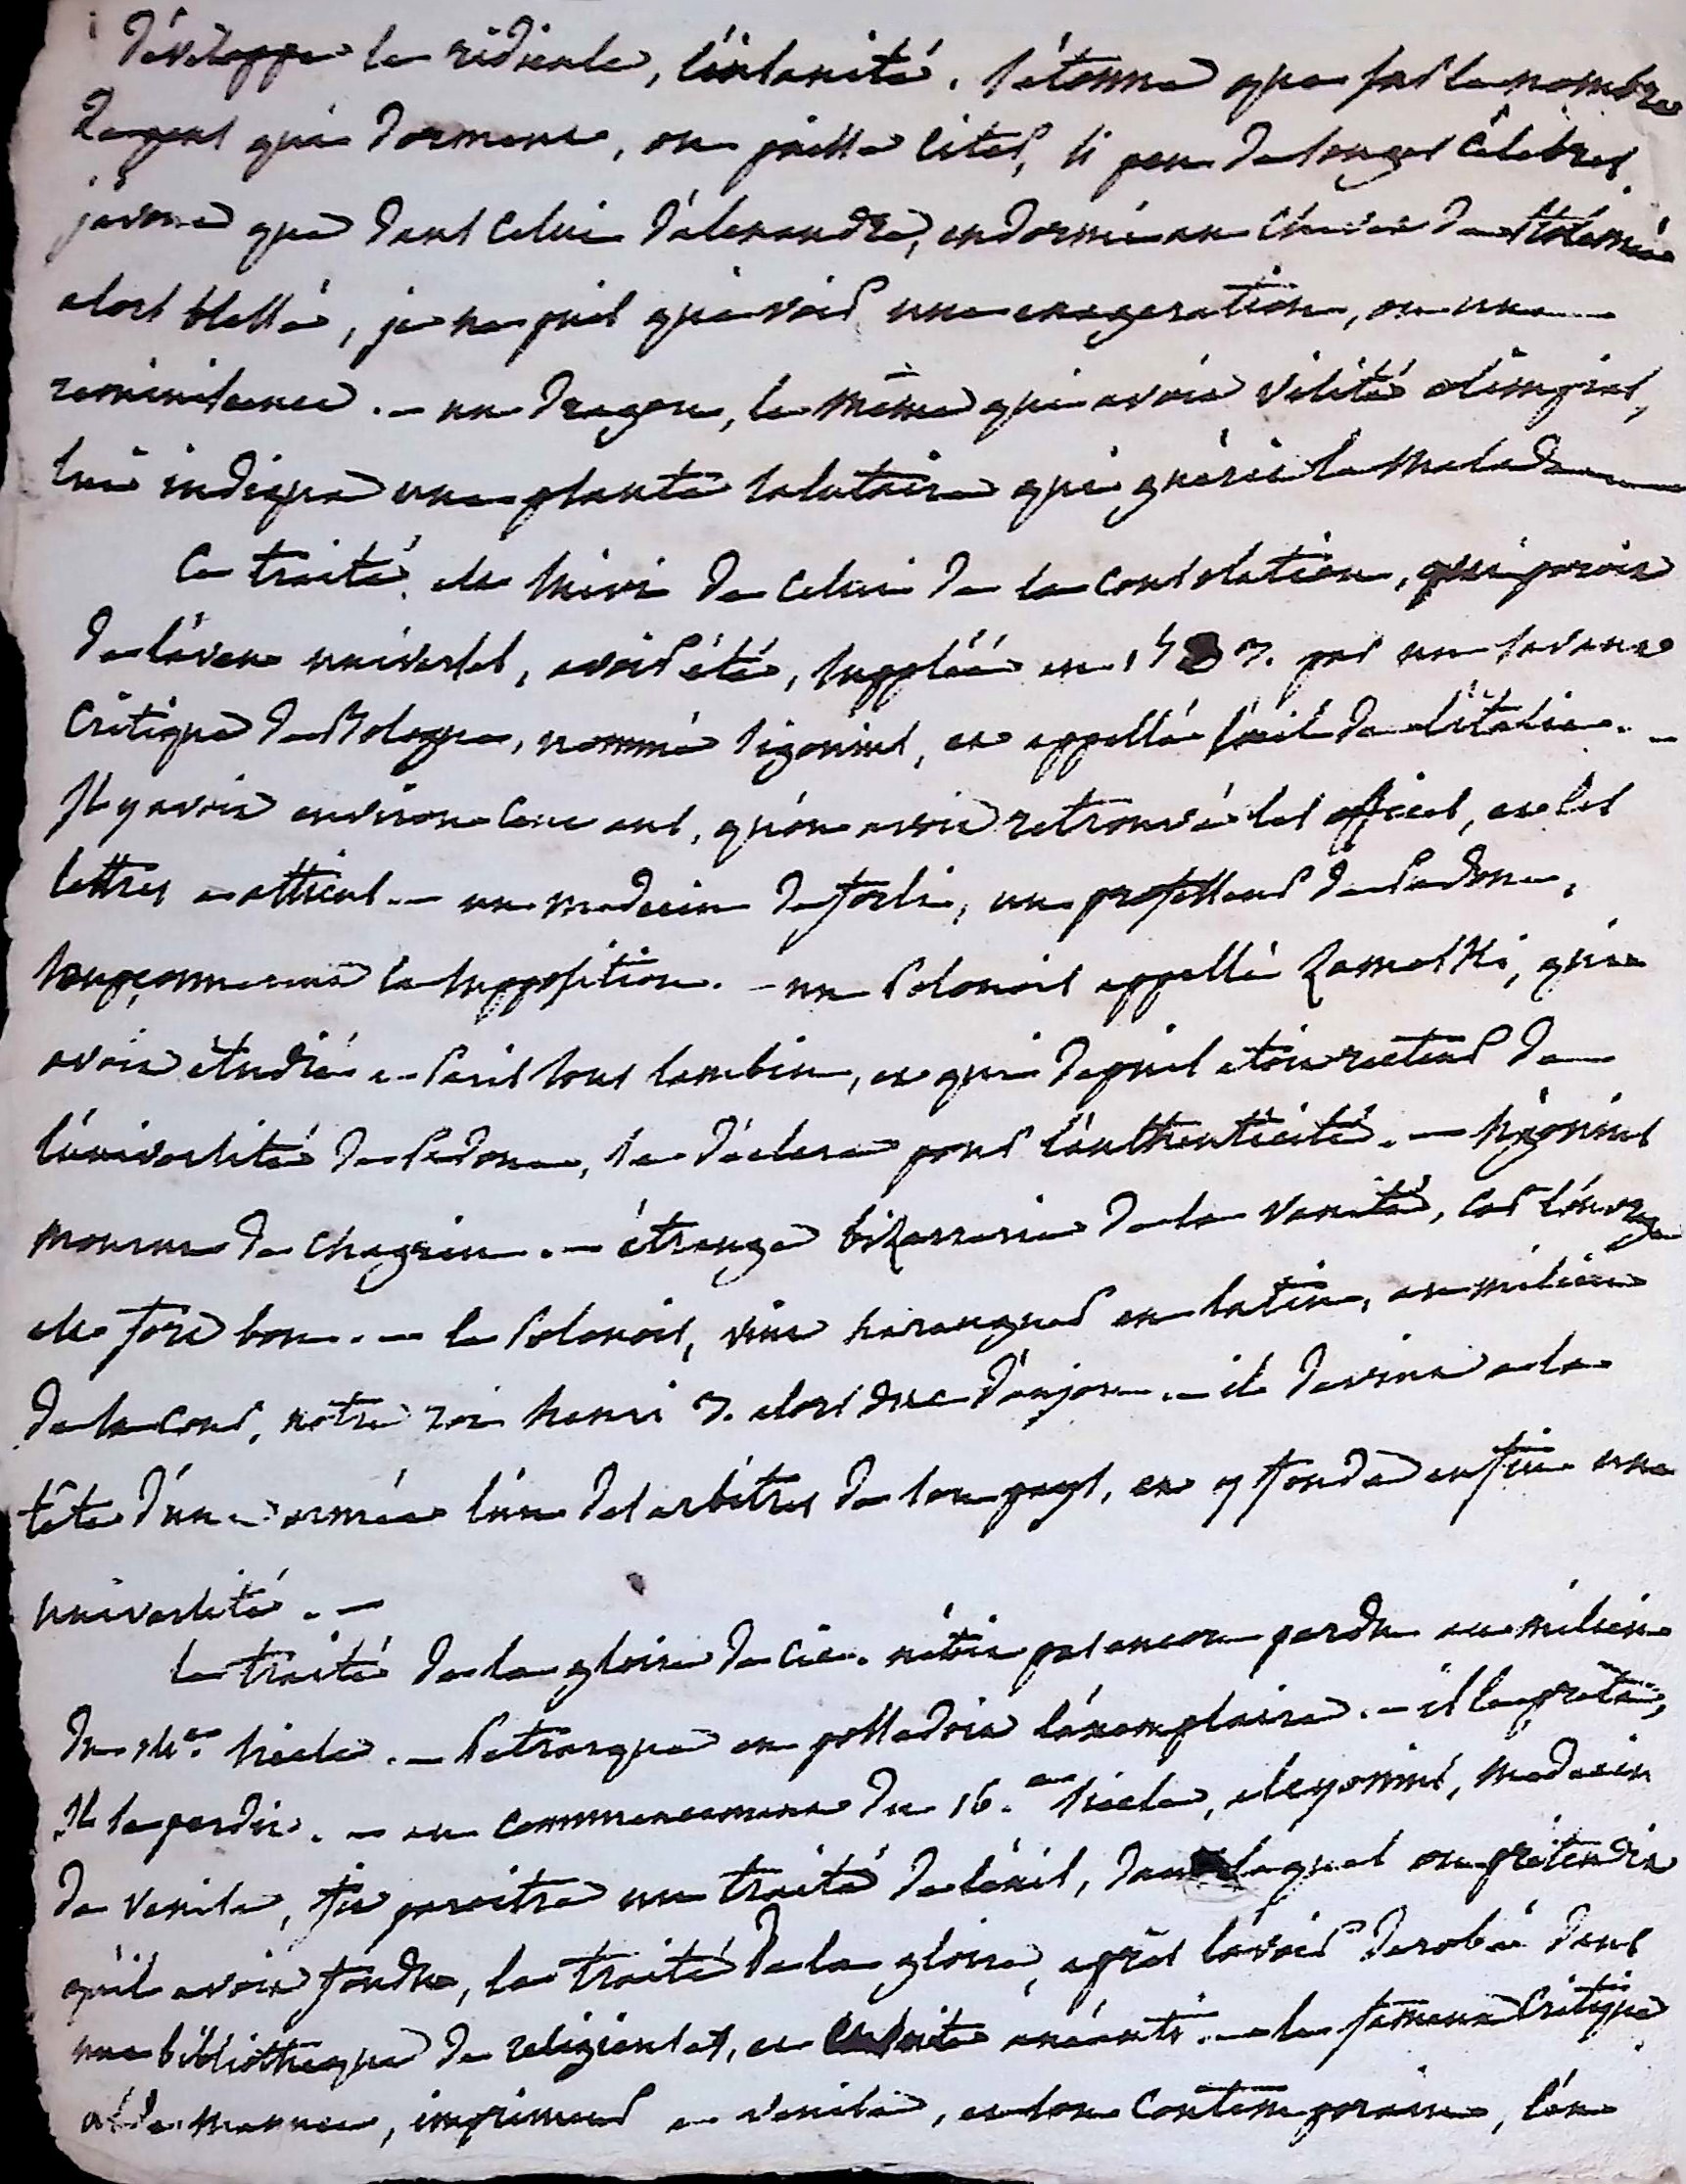 développe le ridicule, l'insanité. s'étonne que sur le nombre
de gens qui dorment, on puisse citer, si peu de songes célèbres.
j'avoue que dans celui d'alexandre, endormi au chevet de Ptolémée
alors blessé, je ne puis qu'y voir une exageration, ou une
reminiscence. — un dragon, le même qui avoit visité olimpias,
lui indiqua une plante salutaire qui guérit le malade
Ce traité, est suivi de celui de la consolation, qui paroit
de l'aveu universel, avoir été, suppléé en 1583. par un savant
critique de Bologne, nommé sigonius, et appellé l'œil de l'italie. —
Il y avoit environ cent ans, qu'on avoit retrouvé les offices, et les
lettres a atticus. — un medecin de forli, un professeur de Padoue,
soupçonnerent la supposition. — un Polonois appellé Zamoski, qui
avoit étudié a Paris sous lambin, et qui depuis etoit recteur de
l'université de Padoue, se déclara pour l'authenticité. — sigonius
mourut de chagrin. — étrange bizarrerie de la vanité, car l'ouvrage
est fort bon. — le Polonois, vint haranguer en latin, au milieu
de la cour, notre roi henri 3. alors duc d'anjou. — il devint a la
tête d'une armée l'un des arbitres de son pays, et y fonda enfin une
université. —
le traité de la gloire de Cic. n'étoit pas encore perdu au milieu
du 14e. siecle. — Petrarque en possedoit l'exemplaire. — il le prêta,
Il se perdit. — au commencement du 16.eme siecle, alcyonius, medecin
de venise, fit paroitre un traité de l'exil, dans lequel on prétendit
qu'il avoit fondu, le traité de la gloire, après l'avoir derobé dans
une bibliotheque de religieuses, et ensuite anéanti. — le fameux critique
alde manuce, imprimeur a venise, et son contemporain, l'en